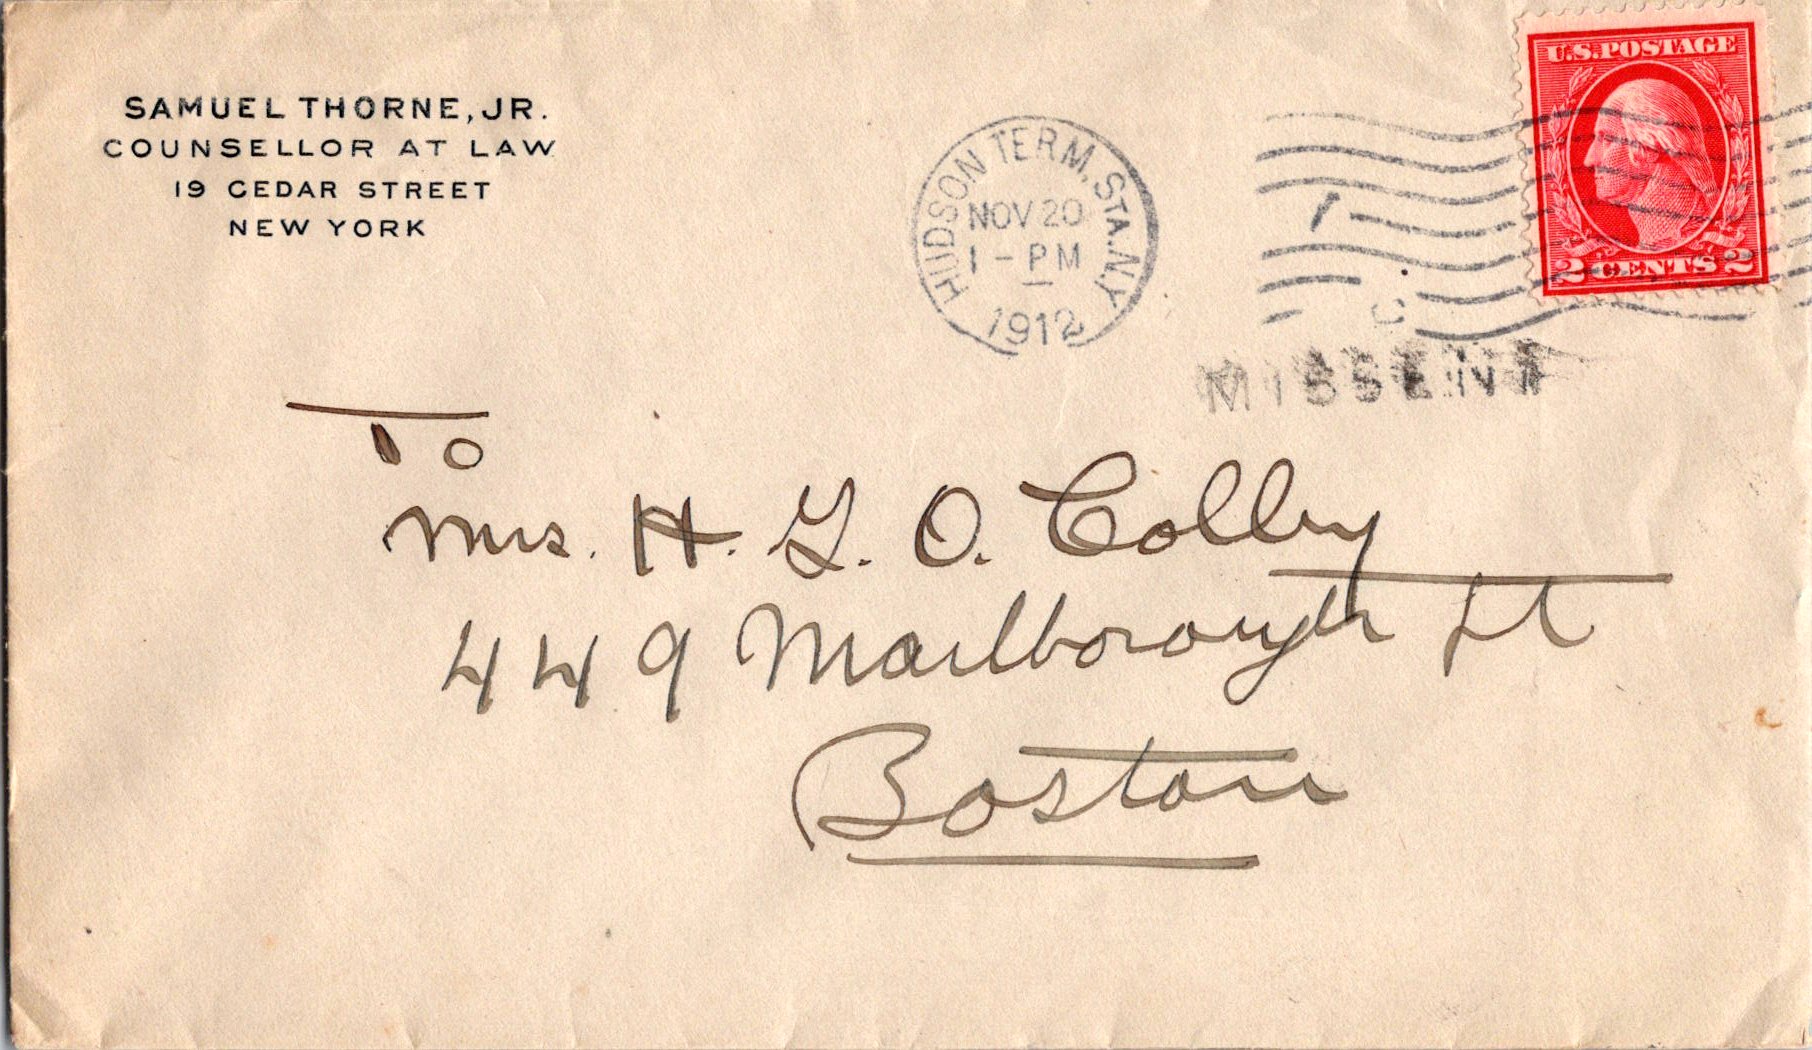 SAMUEL THORNE, JR.
COUNSELLOR AT LAW
19 CEDAR STREET
NEW YORK
HUDSON TERM. STA. N.Y.
NOV 20
1 - PM
1912
U.S. POSTAGE
2 CENTS 2
MISSENT
To
Mrs. H. G. O. Colby
449 Marlborough St
Boston